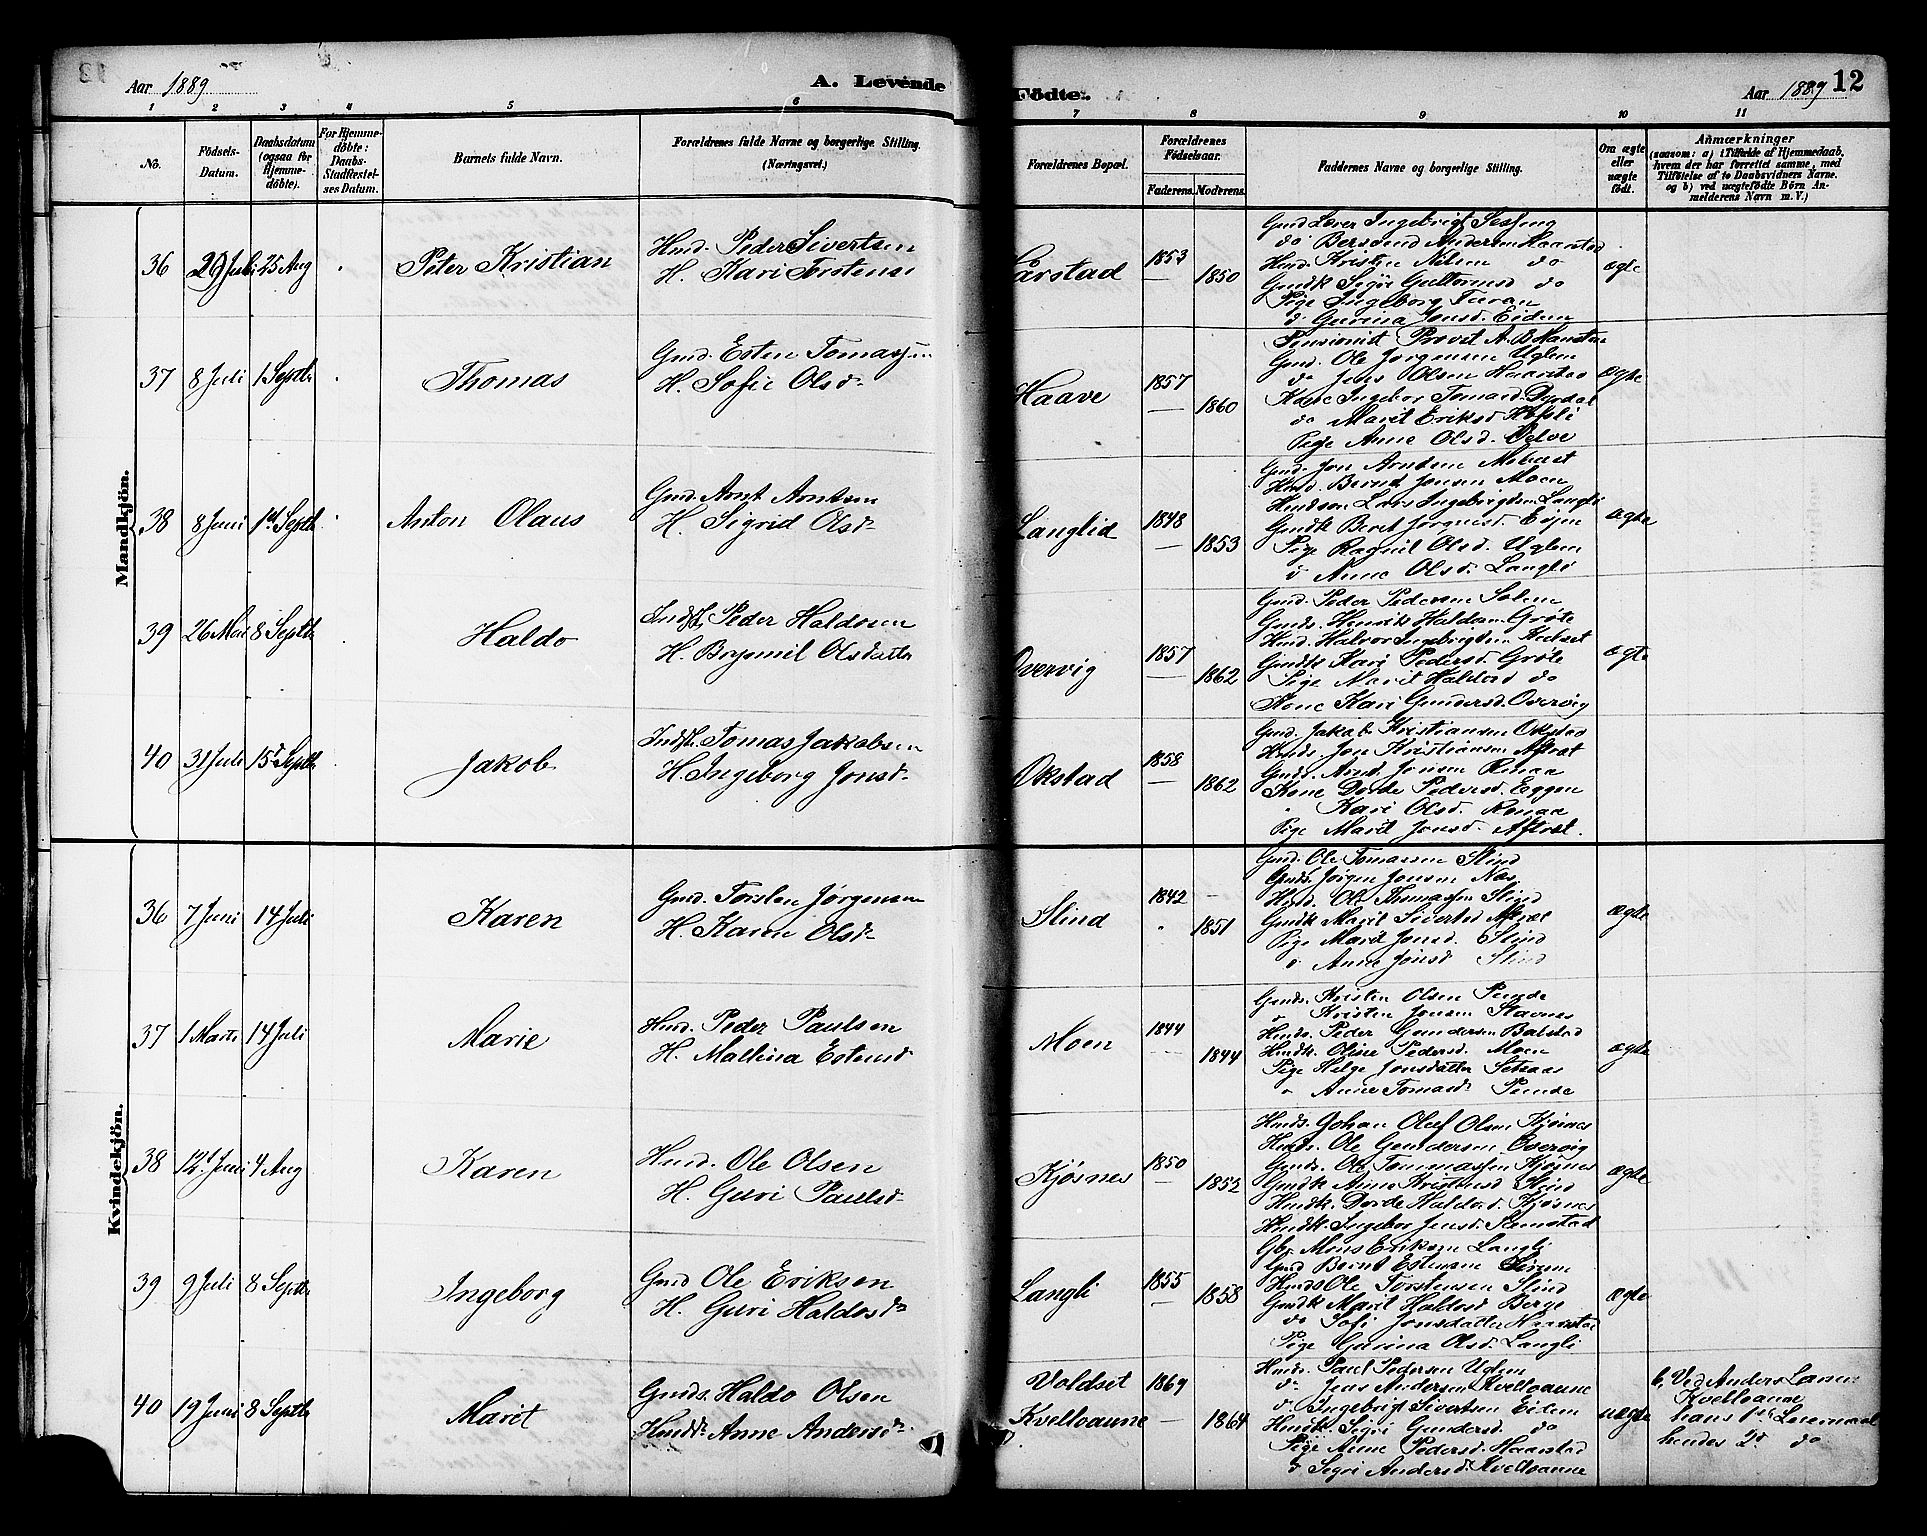 Aar 1889
A. Levende
Födte.
Aar 1889 12
1 2 3 4 5 6 7 8 9 10 11
No.
Födsels-Datum.
Daabsdatum (ogsaa for Hjemmedöbte).
For Hjemmedöbte: Daabs-Stadfæstelses Datum.
Barnets fulde Navn.
Forældrenes fulde Navne og borgerlige Stilling. (Næringsvei.)
Forældrenes Bopæl.
Forældrenes Födselsaar.
Faderens. Moderens.
Faddernes Navne og borgerlige Stilling.
Om ægte eller uægte födt.
Anmærkninger
(saasom: a) i Tilfælde af Hjemmedaab, hvem der har forrettet samme, med Tilföielse af to Daabsvidners Navne. og b) ved uægtefödte Börn Anmelderens Navn m. V.)
Mandkjön.
36 29 Juli 25 Aug Peter Kristian
Hmd. Peder Sivertsen
H. Kari Torstensd
Aarstad 1853 1850 ægte
Do Bersvend Andersen Haarstad
Hmd. Kristen Nilsen do
Gmdk Sigri Guttormsd do
Pige Ingeborg Turan
d Gurina Jonsd. Eidem
37 8 Juli 1 Septb. Thomas
Gmd. Esten Tomassen
H. Sofie Olsd.
Haave 1857 1860 ægte
Pensionist Provst
Gmd. Ole Jørgensen Uglem
do Jens Olsen Haarstad
Kone Ingebor Tomasd. Dyrdal
do Marit Eriksd
Pige Anne Olsd. Selve
38 8 Juni 1st Septb Anton Olaus
Gmd. Arnt Arntsen
H. Sigrid Olsd
Langlid 1848 1853 ægte
Gmd. Jon Arntsen
Hmd. Bernt Jonsen Moen
Hmdsøn Lars Ingebrigtsen Langli
Gmdk Beret
Pige Ragnil Olsd. Uglem
d Anne Olsd. Langli
39 26 Mai 8 Septb Haldo
Indst. Peder Haldosen
H. Brynnil Olsdatter
Overvig 1857 1862 ægte
Gmd. Peder Pedersen Solem
Gmds. Henrik Haldosen Grøte
Hmd. Halvor Ingebrigtsen
Gmdk Kari Pedersd. Grøte
Pige Marit Haldosd do
Kone Kari Gundersd. Overvig
40 31 Juli 15d Septb Jakob
Indst. Tomas Jakobsen
H. Ingeborg Jonsd.
Okstad 1858 1862
Gmd. Jakob Kristiansen Okstad
Hmds. Jon Kristiansen Aftret
Gmds. Arnt Jonsen Renaa
Kone Dorde Pedersd. Eggen
" Kari Olsd. Renaa
Pige Marit Jonsd. Aftret.
Kvindekjön.
36 7 Juni 14 Juli Karen
Gmd. Torsten Jørgensen
H. Karen Olsd
Slind 1842 1851 ægte
Gmd. Ole Tomassen Slind
Gmds. Jørgen Jonsen Næs
Hmd. Ole Thomassen Slind
Gmdk Marit Sivertsd Aftret
Pige Marit Jonsd. Slind
d Anne Jonsd Slind
37 1 Marts 14 Juli Marie
Hmd. Peder Paulsen
H. Malhina Estensd
Moen 1844 1844 ægte
Gmds. Kristen Olsen Sende
" Kristen Jonsen Stavnes
Hmds. Peder Gundersen Balstad
Hmdk. Oline Pedersd. Moen
Pige Helge Jonsdatter Setsaas
" Anne Tomasd. Sende
38 12t Juni 4 Aug Karen
Hmd. Ole Olsen
H. Guri Paulsd
Kjøsnes 1850 1852 ægte
Hmds. Johan Oluf Olsen Kjøsnes
Hmds. Ole Gundersen Overvig
Gmds. Ole Tommassen Kjøsnes
Gmdk Anne Kristensd Slind
Hmdk. Dorde Haldosd. Kjøsnes
Hmdk. Ingebor Jensd. Stamstad
39 9 Juli 8 Septb Ingeborg
Gmd Ole Eriksen
H. Guri Haldosd
Langli 1855 1858 ægte
Gbr. Mons Eriksen Langli
Gmd Bernt Estensen
Hmds Ole Torstensen Slind
Gmdk Marit Haldosd Berge
do Sofi Jonsdatter Haarstad
Pige Gurina Olsd. Langli
40 19 Juni 8 Septb Marit
Gmds. Haldo Olsen
Hmdd. Anne Andersd.
Voldset 1869
Kvelloaune 1864 uægte
Hmds. Paul Pedersen Uglem
do Jens Andersen Kvelloaune
do Ingebrigt Sivertsen Eidem
Hmdk. Sigri Gundersd. do
Pige Anne Pedersd. Haarstad
d Segri Andersd. Kvelloaune
b, Ved Anders Larsen
Kvelloaune
hans 1ste Leiermaal
hendes 2d do